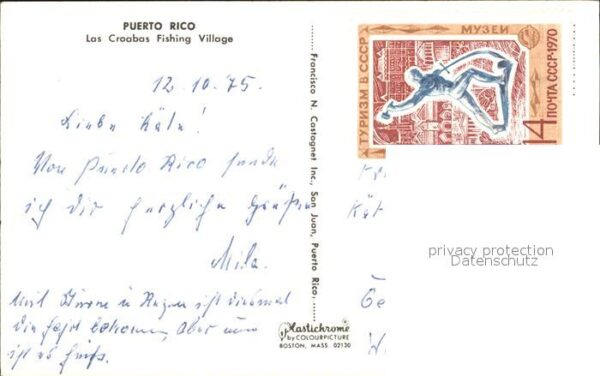 PUERTO RICO
Las Croabas Fishing Village
12.10.75.
Liebe Käte!
Von Puerto Rico sende
ich dir herzliche Grüße
Mila.
Mit Sturm u Regen ist diesmal
die
ist es
Francisco N. Castagnet Inc., San Juan, Puerto Rico,
Plastichrome
by COLOURPICTURE
BOSTON, MASS 02130
ТУРИЗМ В СССР
МУЗЕИ
14 ПОЧТА СССР·1970
Kät
privacy protection
Datenschutz